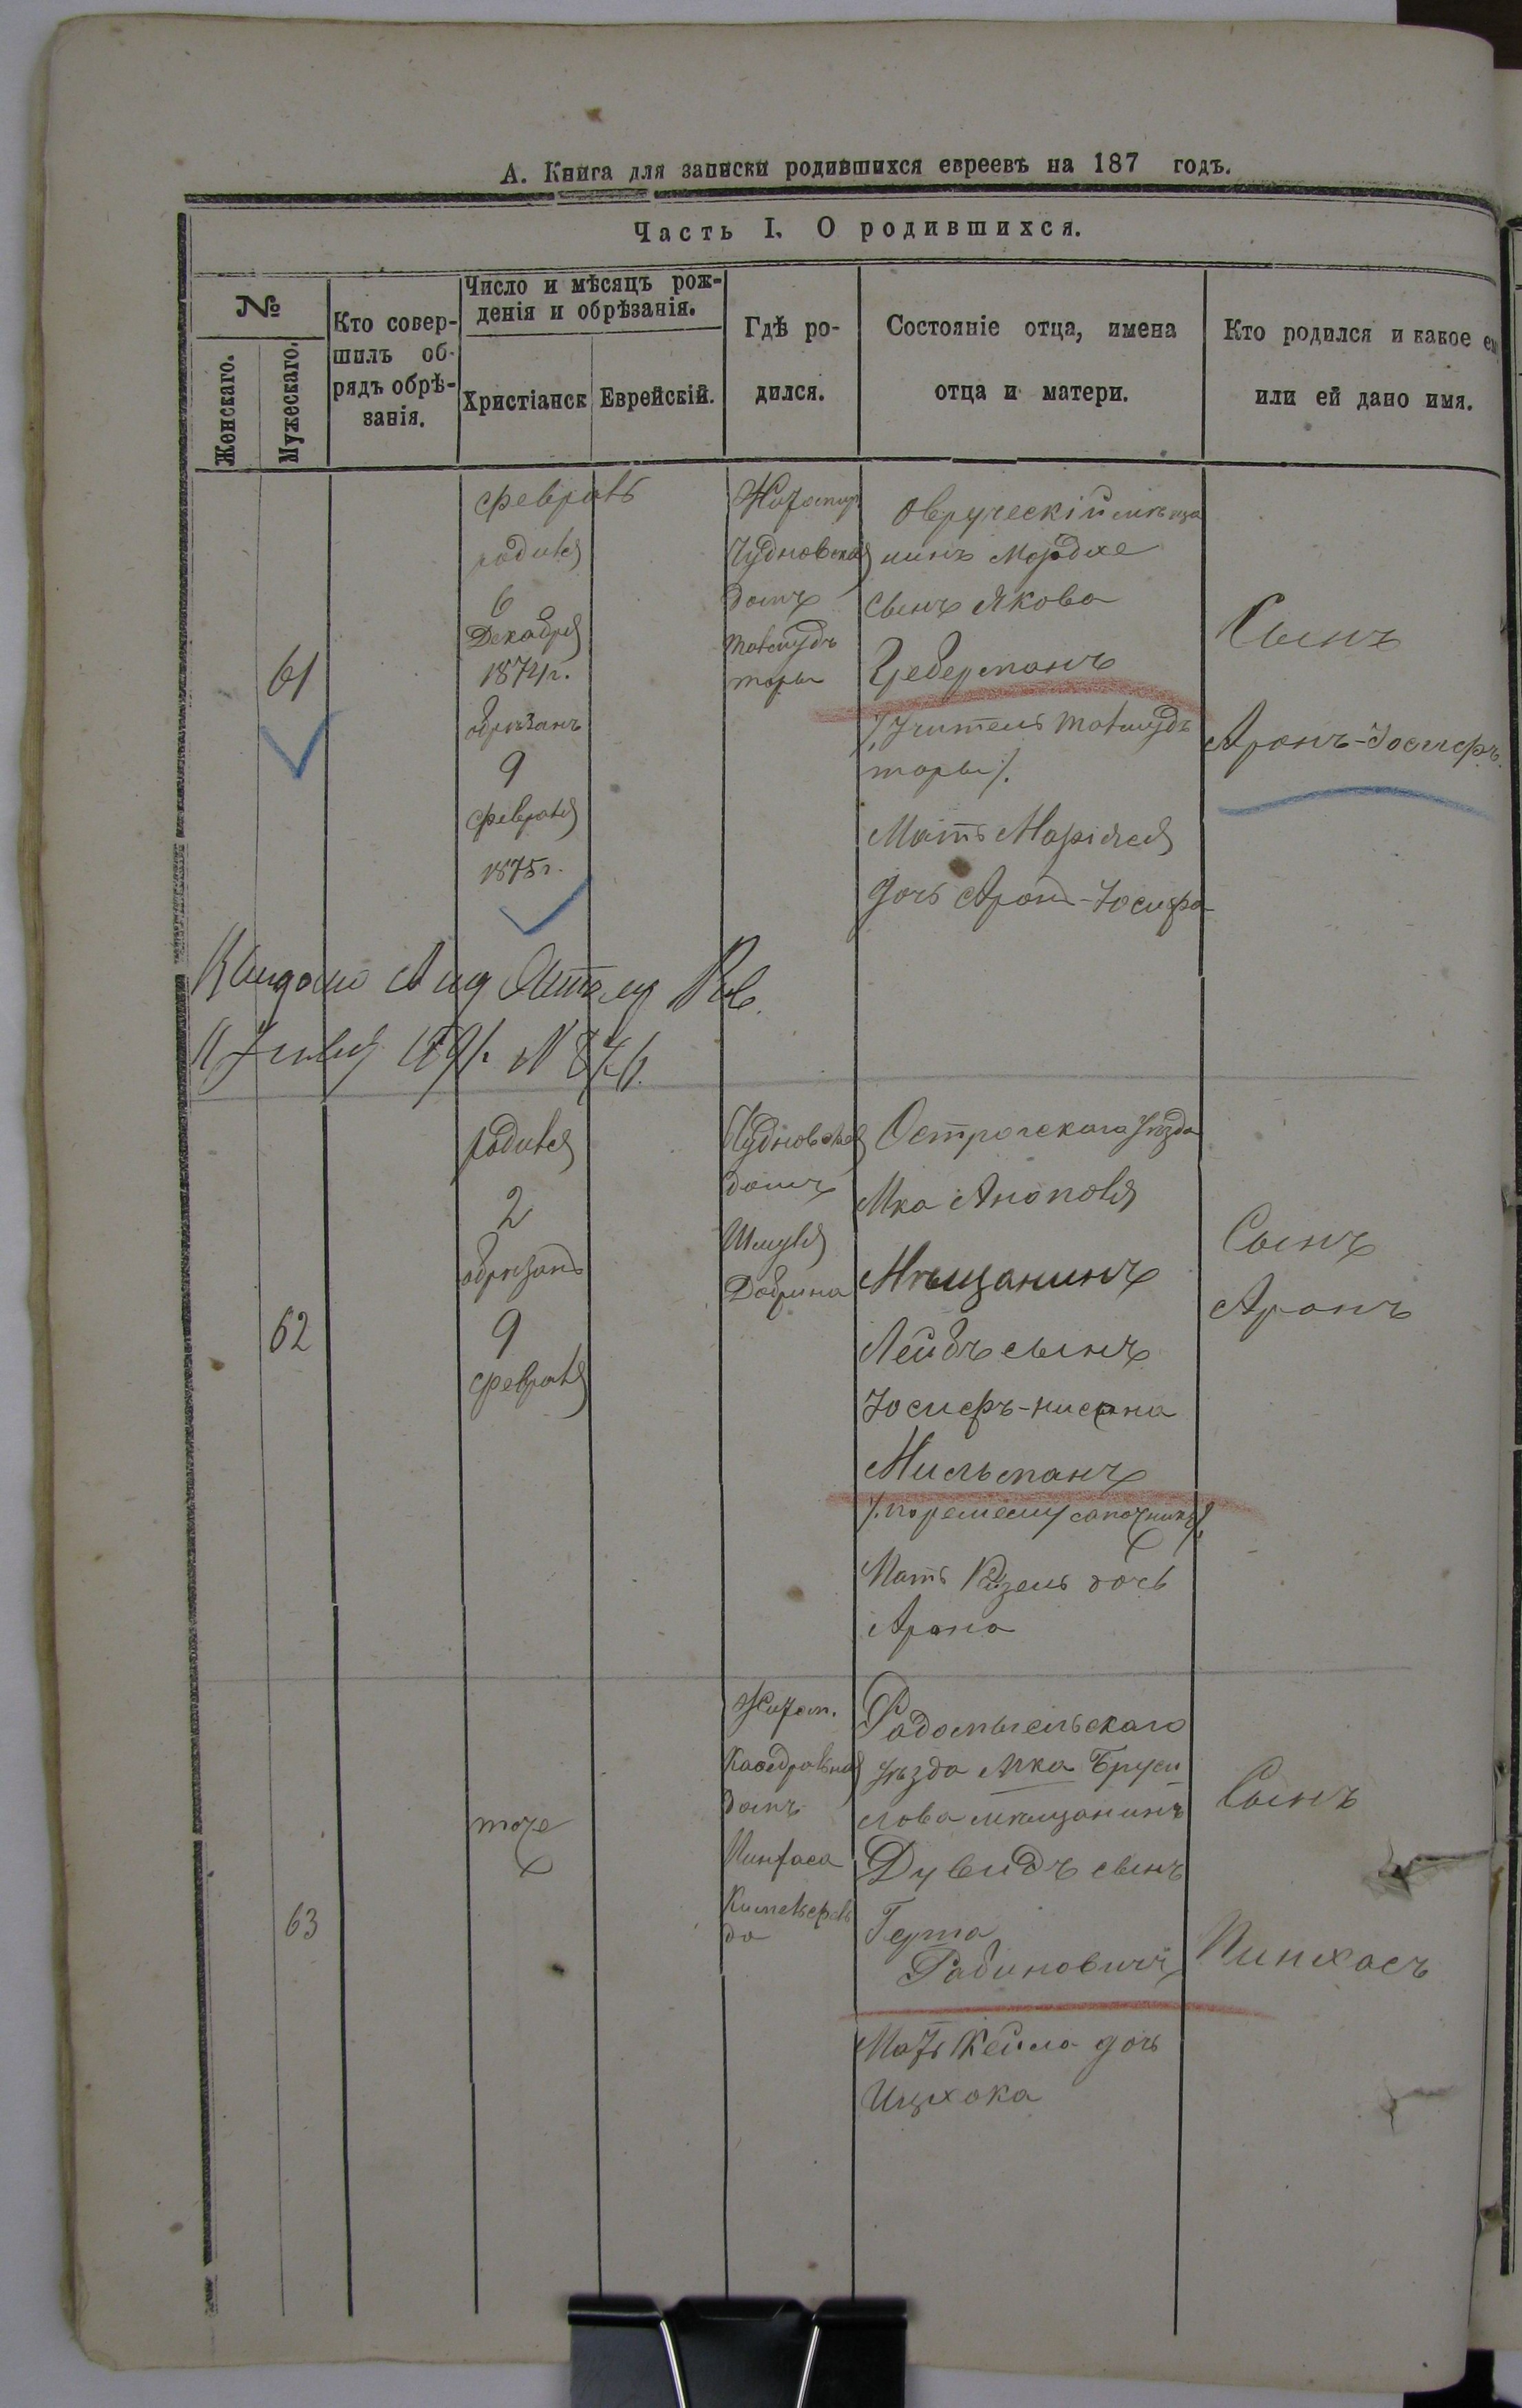 А. Книга для записки родившихся евреевъ на 187 годъ.
Часть I. О родившихся.
№
Женскаго.
Мужескаго.
Кто совер-
шилъ об-
рядъ обрѣ-
занія.
Число и мѣсяцъ рож-
денія и обрѣзанія.
Христіанск
Еврейскій.
Гдѣ ро-
дился.
Состояніе отца, имена
отца и матери.
Кто родился и какое
или ей дано имя.
61
февраль
родился
6
Декабря
1874 г.
обрѣзанъ
9
февраля
1875 г.
Житомир
Чудновская
домъ
талмудъ
торы
Овруческій мѣща
нинъ Мордхе
сынъ Якова
Цедерманъ
/. Учитель талмудъ
торы /.
Мать Маріяся
дочь Аронъ-Іосифа
Сынъ
Аронъ-Іосифъ.
№
62
родился
2
обрѣзанъ
9
февраля
Чудновская
домъ
Шмуля
Добрина
Острогскаго уѣзда
Мка Анополя
Мѣщанинъ
Лейбъ сынъ
Іосифъ-нисона
Мильманъ
/. по ремеслу сапожникъ /.
Мать Рейзель дочь
Арона
Сынъ
Аронъ
63
тоже
Житом.
Каѳедральная
домъ
Пинхаса
Радомысльскаго
уѣзда Мка Бруси
лова мѣщанинъ
Дувидъ сынъ
Герша
Рабиновичъ
Мать Кейла дочь
Ицхока
Сынъ
Пинхасъ